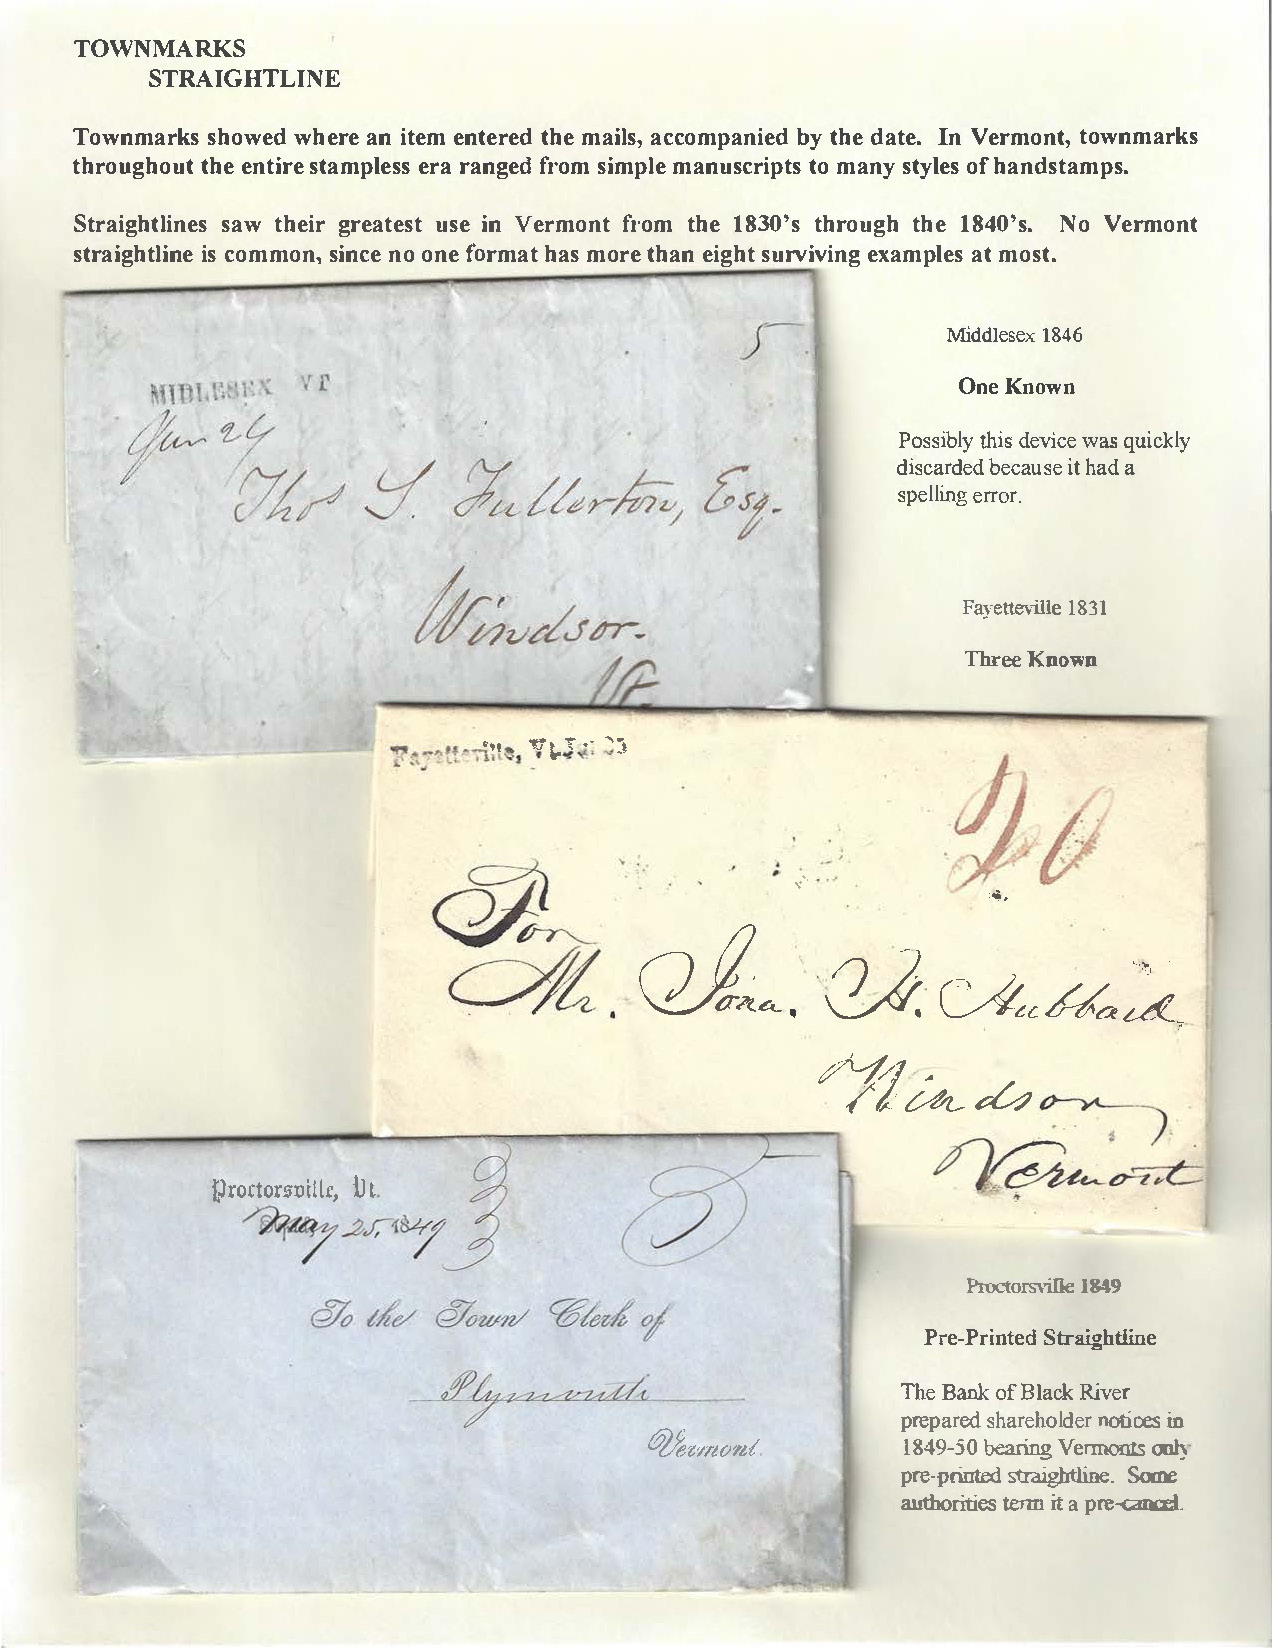 TOWNMARKS
STRAIGHTLINE
Townmarks showed where an item entered the mails, accompanied by the date. In Vermont, townmarks
throughout the entire stampless era ranged from simple manuscripts to many styles of handstamps.
Straightlines saw their greatest use in Vermont from the 1830's through the 1840's. No Vermont
straightline is common, since no one format has more than eight surviving examples at most.
Middlesex 1846
One Known
Possibly this device was quickly
discarded because it had a
spelling error.
5
MIDLESEX VT
Jun 24
Thos S. Fullerton, Esq.
Windsor.
Vt.
Fayetteville 1831
Three Known
Fayetteville, Vt. Jul 25
20
For
Mr. Jona. H. Hubbard
Windsor
Vermont
Proctorsville, Vt.
May 25, 1849
5
To the Town Clerk of
Plymouth
Vermont.
Proctorsville 1849
Pre-Printed Straightline
The Bank of Black River
prepared shareholder notices in
1849-50 bearing Vermonts only
pre-printed straightline. Some
authorities term it a pre-cancel.